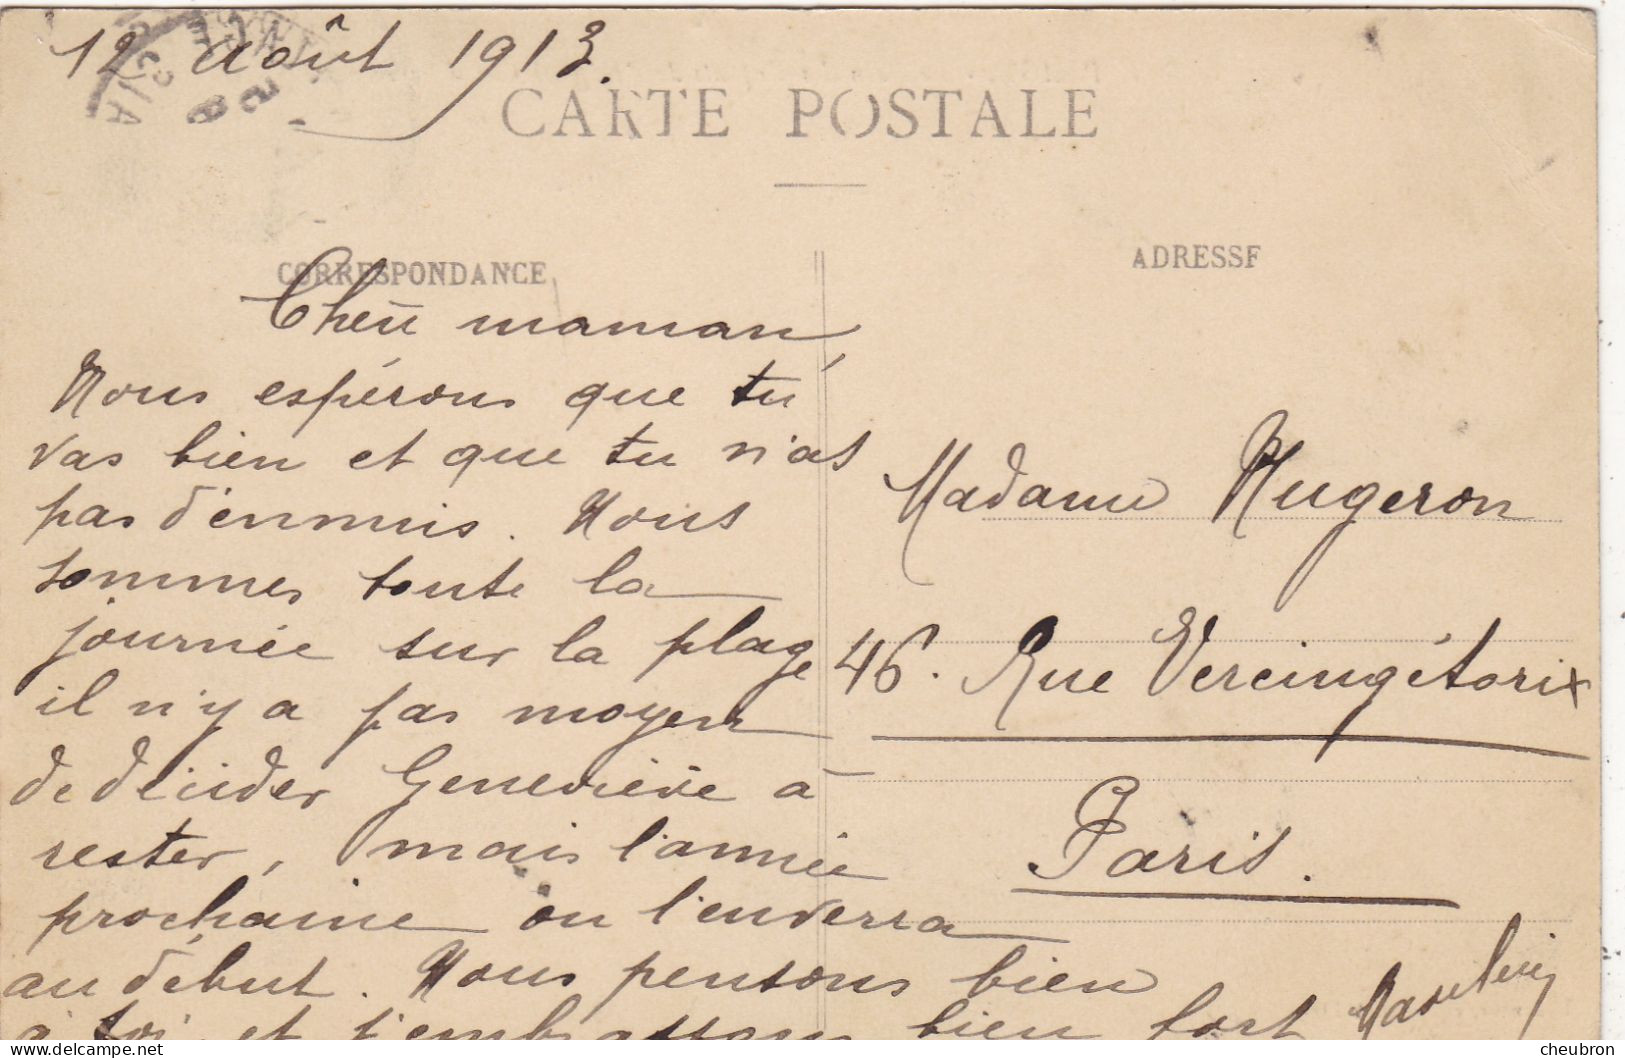 12 Août 1913.
CARTE POSTALE
CORRESPONDANCE
ADRESSE
maman,
Nous espérons que tu
vas bien et que tu n'as
pas d'ennuis. Nous
sommes toute la
journée sur la plage
il n'y a pas moyen
de décider Geneviève à
rester, mais l'année
prochaine on l'enverra
au début. Nous pensons bien
à toi et t'embrassons bien fort
Madame Nugeron
46. Rue Vercingétorix
Paris.
cheubron